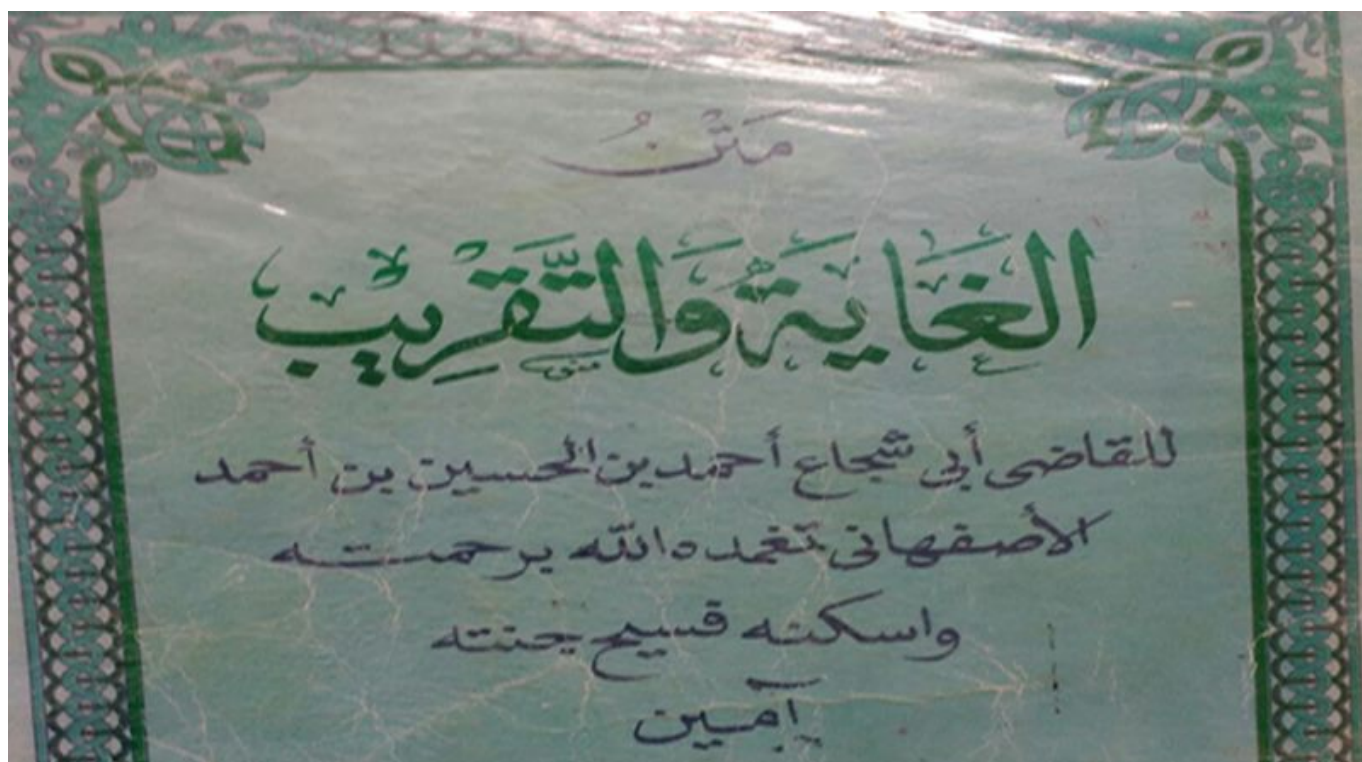 مَتْنُ
الْغَايَةُ وَالتَّقْرِيبْ
للقاضى أبى شجاع أحمد بن الحسين بن أحمد
الأصفهانى تغمده الله برحمته
واسكنه فسيح جنته
آمين